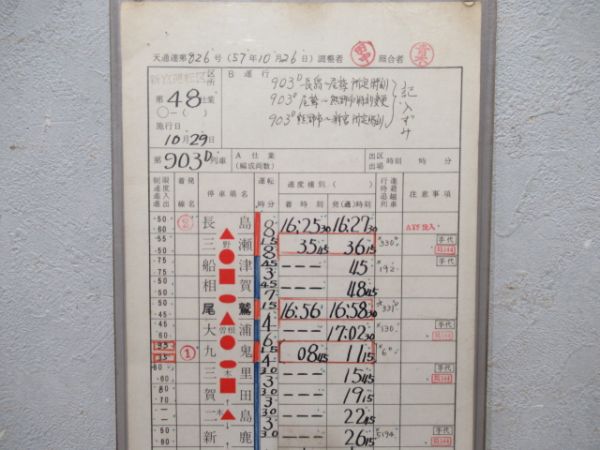 天道運第826号 (57年10月26日) 調整者 照合者
区所
B 運行
第 48 仕業
903D 長島〜尾鷲 所定時刻
903D 尾鷲〜熊野市 時刻変更
903D 熊野市〜新宮 所定時刻
記入ずみ
施行日
10月29日
第903D列車
A 仕業
(編成両数)
出区 出場 時刻 時 分
制限速度 着発線名 停車場名 運転時分 速度種別( ) 行違追越列車 注意事項
着時刻 発(通)時刻
長島 8 16:25 30 16:27 30
三野瀬 1.5 8 35 45 36 15 330D 手代
船津 45 3 --- 45 192
相賀 45 7 --- 48 45
尾鷲 1.5 4 16:56 16:58 30 331D
大曽根浦 6 --- 17:02 30 130 手代
九鬼 1.5 4 08 45 11 15 手代
三木里 30 3 --- 15 45
賀田 30 3 --- 19 15
二木島 30 3 --- 22 45
新鹿 30 --- 26 15 5194 手代